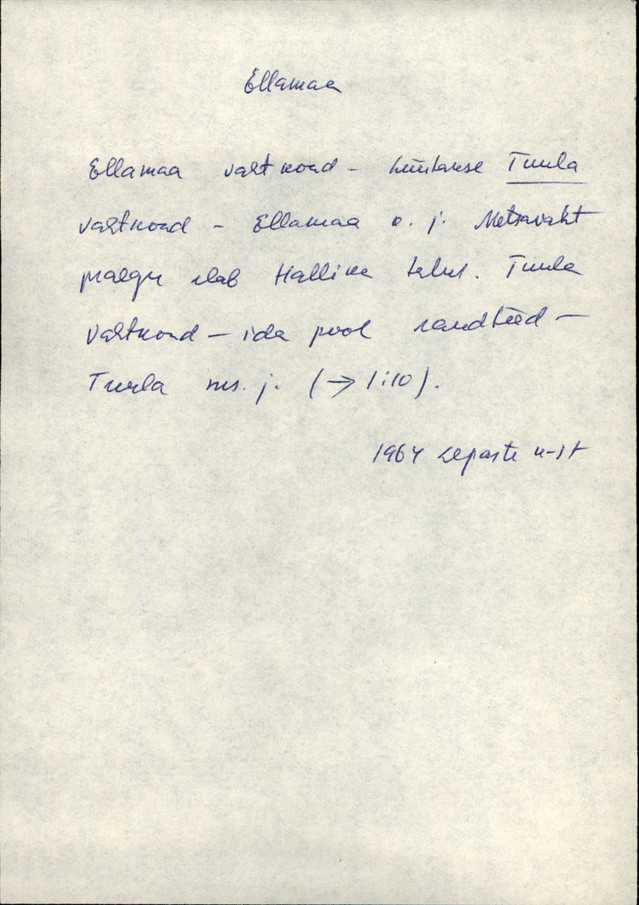 Ellamaa
Ellamaa vahtkond - hüütakse Tuula
vahtkond - Ellamaa o. j. Metsavaht
praegu elab Hallika talus. Tuula
vahtkond - ida pool raudteed -
Tuula ms. j. (→ 1:10).
1964 Lepaste k-st